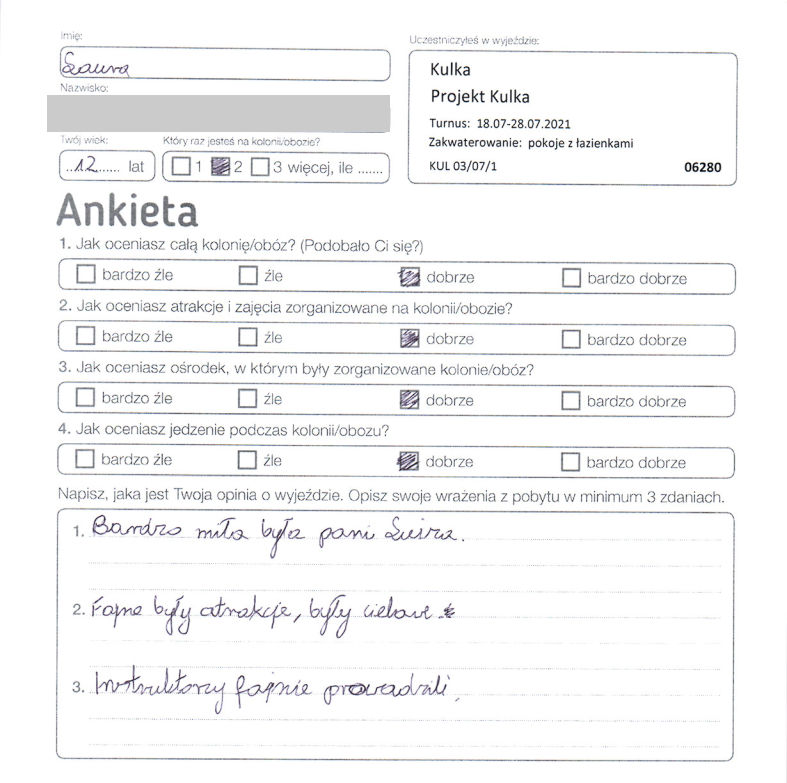 Imię:
Laura
Nazwisko:
Twój wiek:
..12...... lat
Który raz jesteś na kolonii/obozie?
1 2 3 więcej, ile .......
Uczestniczyłeś w wyjeździe:
Kulka
Projekt Kulka
Turnus: 18.07-28.07.2021
Zakwaterowanie: pokoje z łazienkami
KUL 03/07/1 06280
Ankieta
1. Jak oceniasz całą kolonię/obóz? (Podobało Ci się?)
bardzo źle źle dobrze bardzo dobrze
2. Jak oceniasz atrakcje i zajęcia zorganizowane na kolonii/obozie?
bardzo źle źle dobrze bardzo dobrze
3. Jak oceniasz ośrodek, w którym były zorganizowane kolonie/obóz?
bardzo źle źle dobrze bardzo dobrze
4. Jak oceniasz jedzenie podczas kolonii/obozu?
bardzo źle źle dobrze bardzo dobrze
Napisz, jaka jest Twoja opinia o wyjeździe. Opisz swoje wrażenia z pobytu w minimum 3 zdaniach.
1. Bardzo miła była pani
2. Fajne były atrakcje, były ciekawe
3. Instruktorzy fajnie prowadzili.